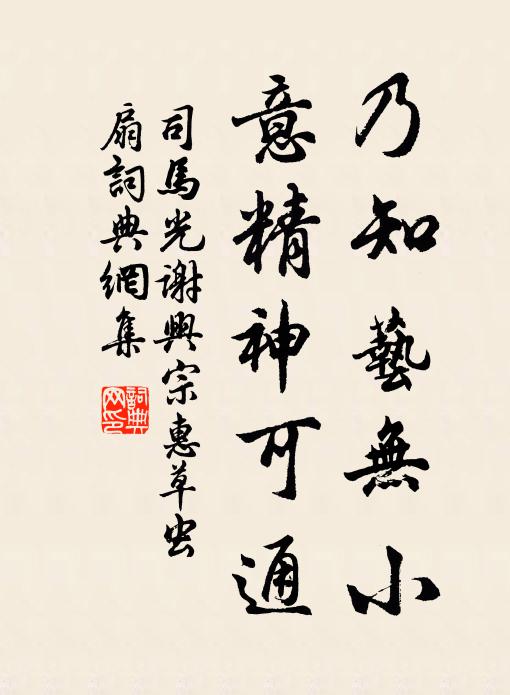 乃知藝無小
意精神可通
司馬光謝興宗惠草虫
扇詞典網集
詞典
网印